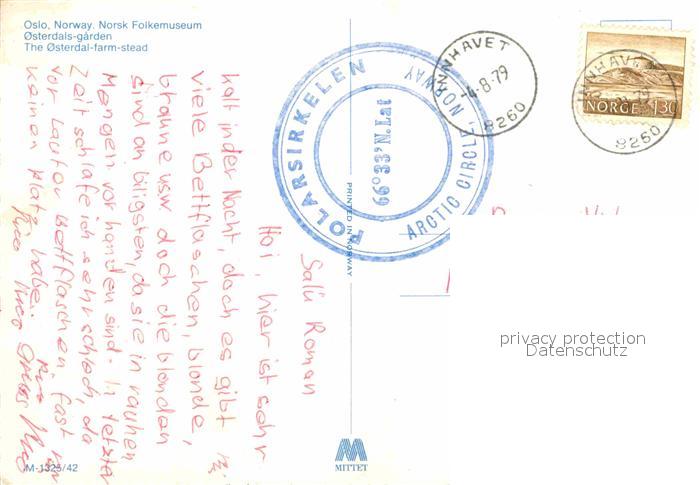 Oslo, Norway. Norsk Folkemuseum
Østerdals-gården
The Østerdal-farm-stead
POLARSIRKELEN
66°33'N.Lat
ARCTIC CIRCLE, NORWAY
INNHAVET
-4-8.79
8260
INNHAVET
8260
NORGE 1,30
PRINTED IN NORWAY
Salü Roman
Hoi, hier ist sehr
kalt in der Nacht, doch es gibt
viele Bettflaschen, blonde,
braune usw. doch die blonden
sind am biligsten, da sie in rauhen
Mengen vorhanden sind. In letzter
Zeit schlafe ich sehr schlecht, da
vor lauter Bettflaschen fast
keinen Platz habe.
Gruss
privacy protection
Datenschutz
M-1325/42
MITTET